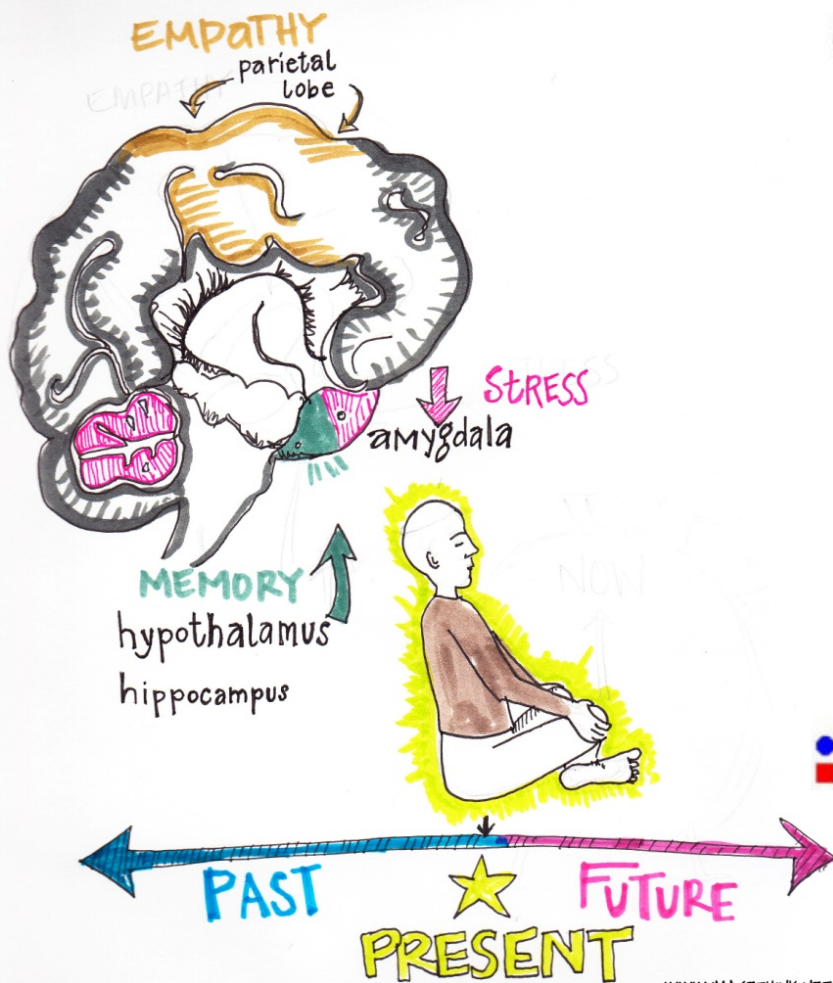 EMPATHY
parietal
lobe
STRESS
amygdala
MEMORY
hypothalamus
hippocampus
PAST
FUTURE
PRESENT